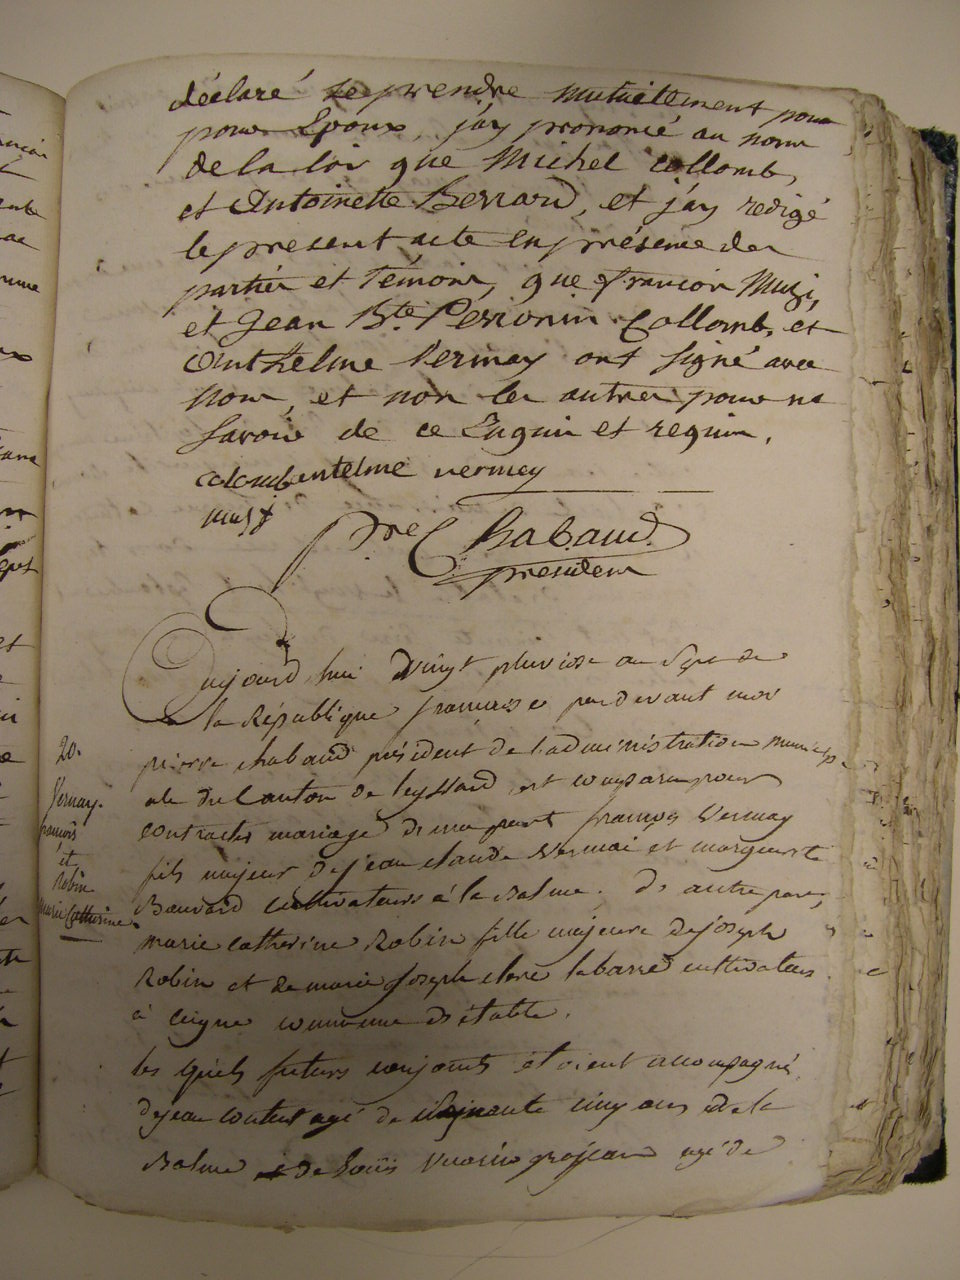 déclaré se prendre mutuellement pour
pour Epoux, j'ay prononcé au nom
de la loi que Michel Collomb,
et Antoinette Bernard, et j'ay redigé
le present acte en présence der
partier et témoin, que françoir Muzi,
et Jean Bte Perronin Collomb, et
Anthelme Vermey ont signé avec
nour, et non ler autrer pour ne
savoir de ce Enquir et requir.
colomb antelme vermey
muzy
pre Chabaud
president
Aujourd'hui vingt pluviose an sept de
la République française pardevant moi
pierre chabaud président de l'administration municip
ale du Canton de leyssard, est comparu pour
contracter mariage d'une part françois Vermay
fils majeur de jean claude Vermai et marguerite
Bauvard cultivateurs à la Balme. de autre part,
marie catherine Robin fille majeure de joseph
Robin et de marie joseph clere labarre cultivateurs
à commune d'étable.
les quels futurs conjoints étoient accompagné
de jean agé de cinquante cinq ans de la
Balme et de Loüis grosjean agé de
20.
Vernay.
françois
et
Robin
marie Catherine.